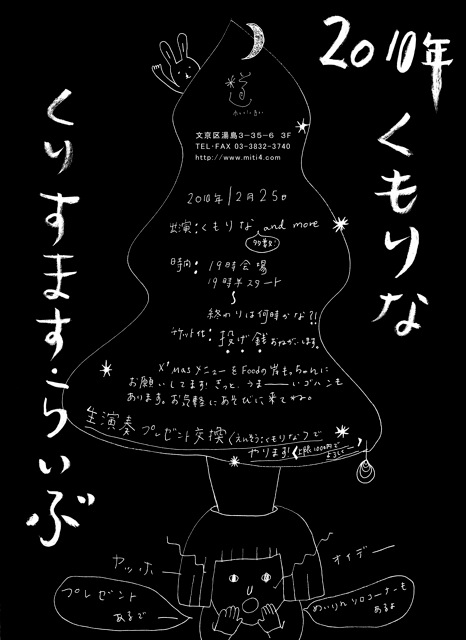 2010年
くもりな
くりすます・らいぶ
道
文京区湯島3−35−6 3F
TEL・FAX 03-3832-3740
http://www.miti4.com
2010年12月25日
出演：くもりな and more
時間：19時会場
19時半スタート
〜
終わりは何時かな?!
チケット代：投げ銭おねがいします。
X'masメニューをFoodの岩もっちゃんに
お願いしてます!きっと、うまーーいゴハンも
あります。お気軽にあそびに来てね。
生演奏プレゼント交換(えんそう:くもりな)で
やります!(上限1000円で
よろしくー)
ヤッホー
オイデー
プレゼント
あるでー
めいりんソロコーナーも
あるよ